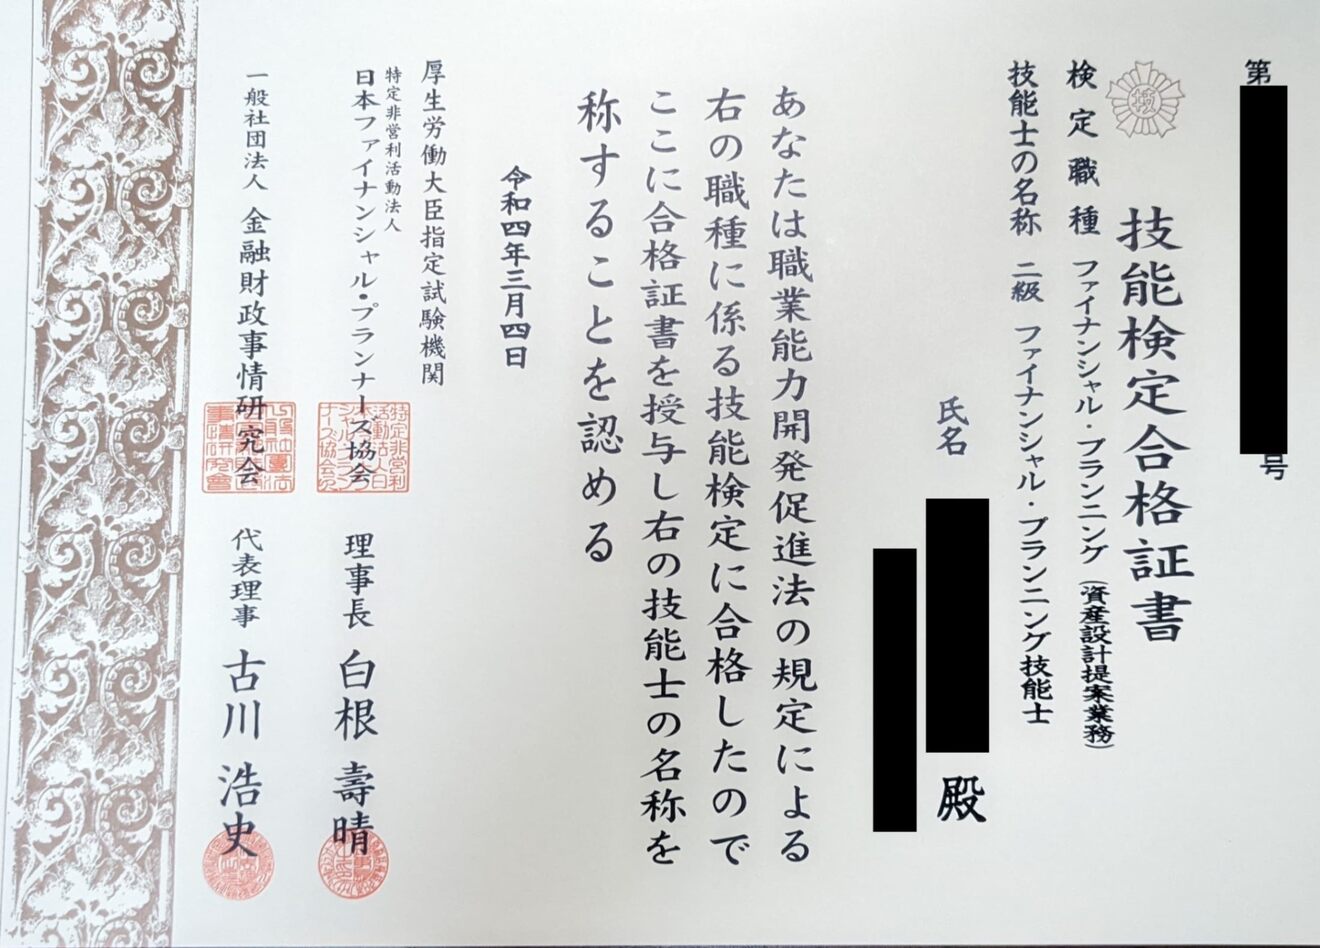 第
号
技能検定合格証書
検定職種 ファイナンシャル・プランニング(資産設計提案業務)
技能士の名称 二級 ファイナンシャル・プランニング技能士
氏名
殿
あなたは職業能力開発促進法の規定による
右の職種に係る技能検定に合格したので
ここに合格証書を授与し右の技能士の名称を
称することを認める
令和四年三月四日
厚生労働大臣指定試験機関
特定非営利活動法人
日本ファイナンシャル・プランナーズ協会 理事長 白根 壽晴
一般社団法人 金融財政事情研究会 代表理事 古川 浩史